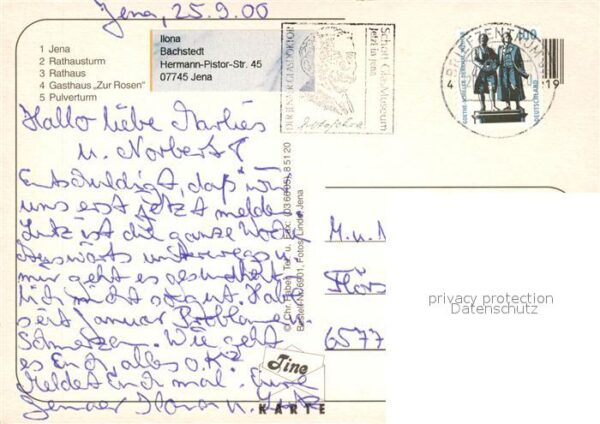 Jena, 25.9.00
1 Jena
2 Rathausturm
3 Rathaus
4 Gasthaus „Zur Rosen"
5 Pulverturm
Ilona
Bächstedt
Hermann-Pistor-Str. 45
07745 Jena
DER JENAER GLASDOKTOR
Schott GlasMuseum
Jetzt in Jena
Otto Schott
BRIEFZENTRUM
4
19
100
GOETHE-SCHILLER-DENKMAL
DEUTSCHLAND
Hallo liebe Marlies
u. Norbert!
Entschuldigt, daß wir
uns erst jetzt melden.
Lutz ist die ganze Woche
unterwegs u.
mir geht es gesundheit-
lich nicht so gut. Habe
seit Januar Probleme u.
Schmerzen. Wie geht
es Euch, alles o.k.?
Meldet Euch mal. Eure
Jenaer Ilona u. Lutz
© Chr. Tel. u. Fax: (03 66 05) 8 51 20
Bestell-Nr. 6901, Fotos: Linde, Jena
M. u. N
Flörs
6577
privacy protection
Datenschutz
Tine
KARTE